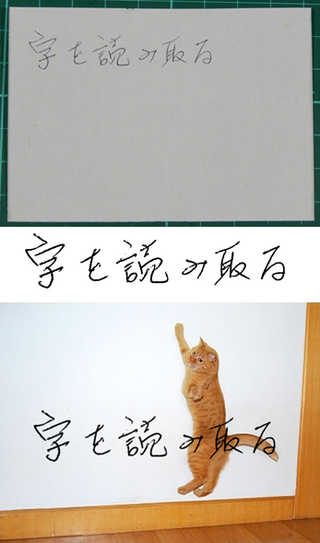 字を読み取る
字を読み取る
字を読み取る